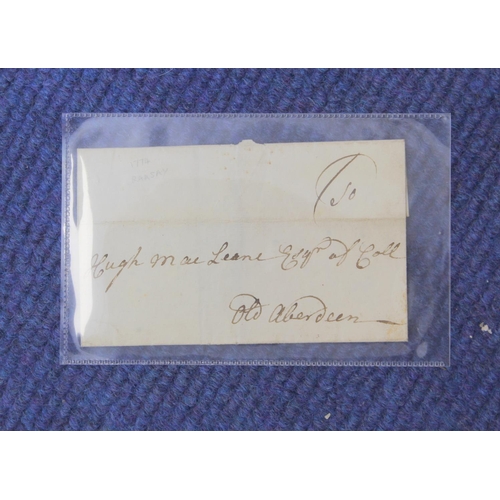 To
Hugh Mac Leane Esqr of Coll
Old Aberdeen